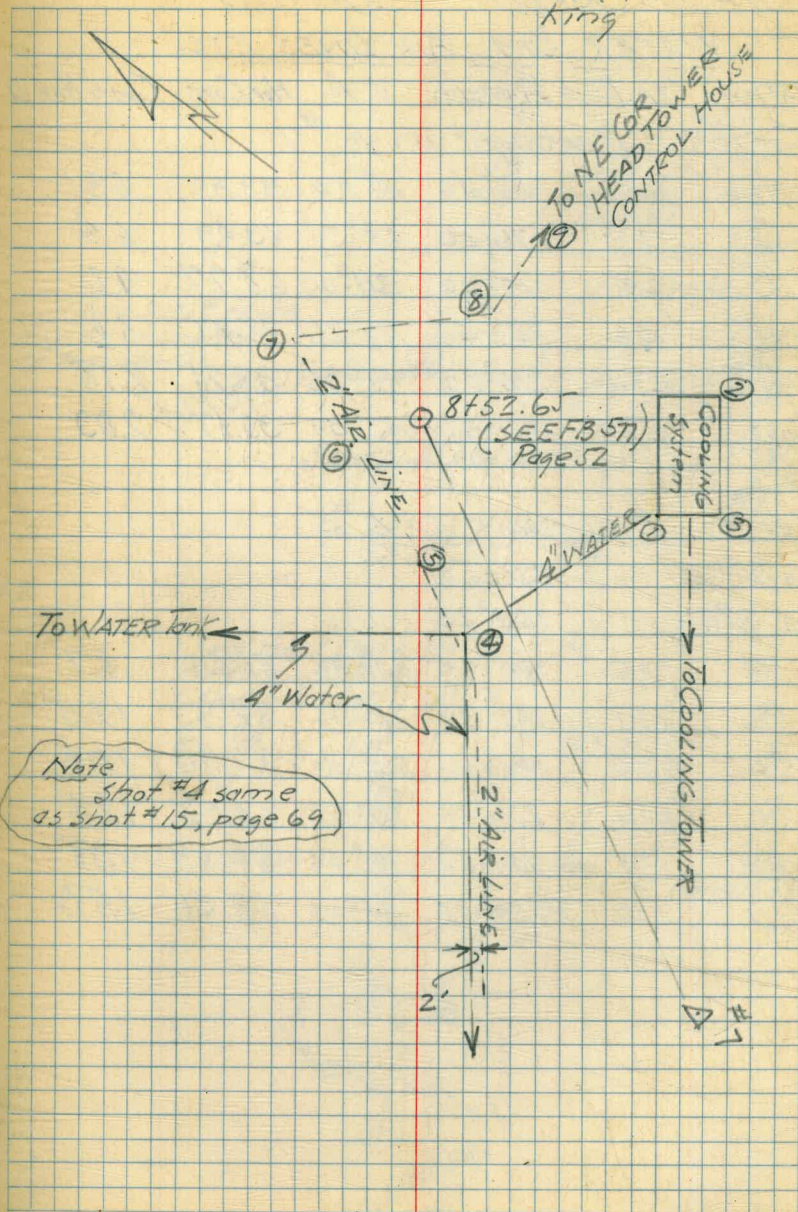 King
N
To NE COR
HEAD TOWER
CONTROL HOUSE
9
8
7
2" AIR LINE
6
8+52.65
(SEE FB 577)
Page 52
2
COOLING
System
3
1
5
4" WATER
To WATER Tank
4
4" Water
To COOLING TOWER
Note
Shot #4 same
as shot #15, page 69
2" AIR LINE
2'
#7